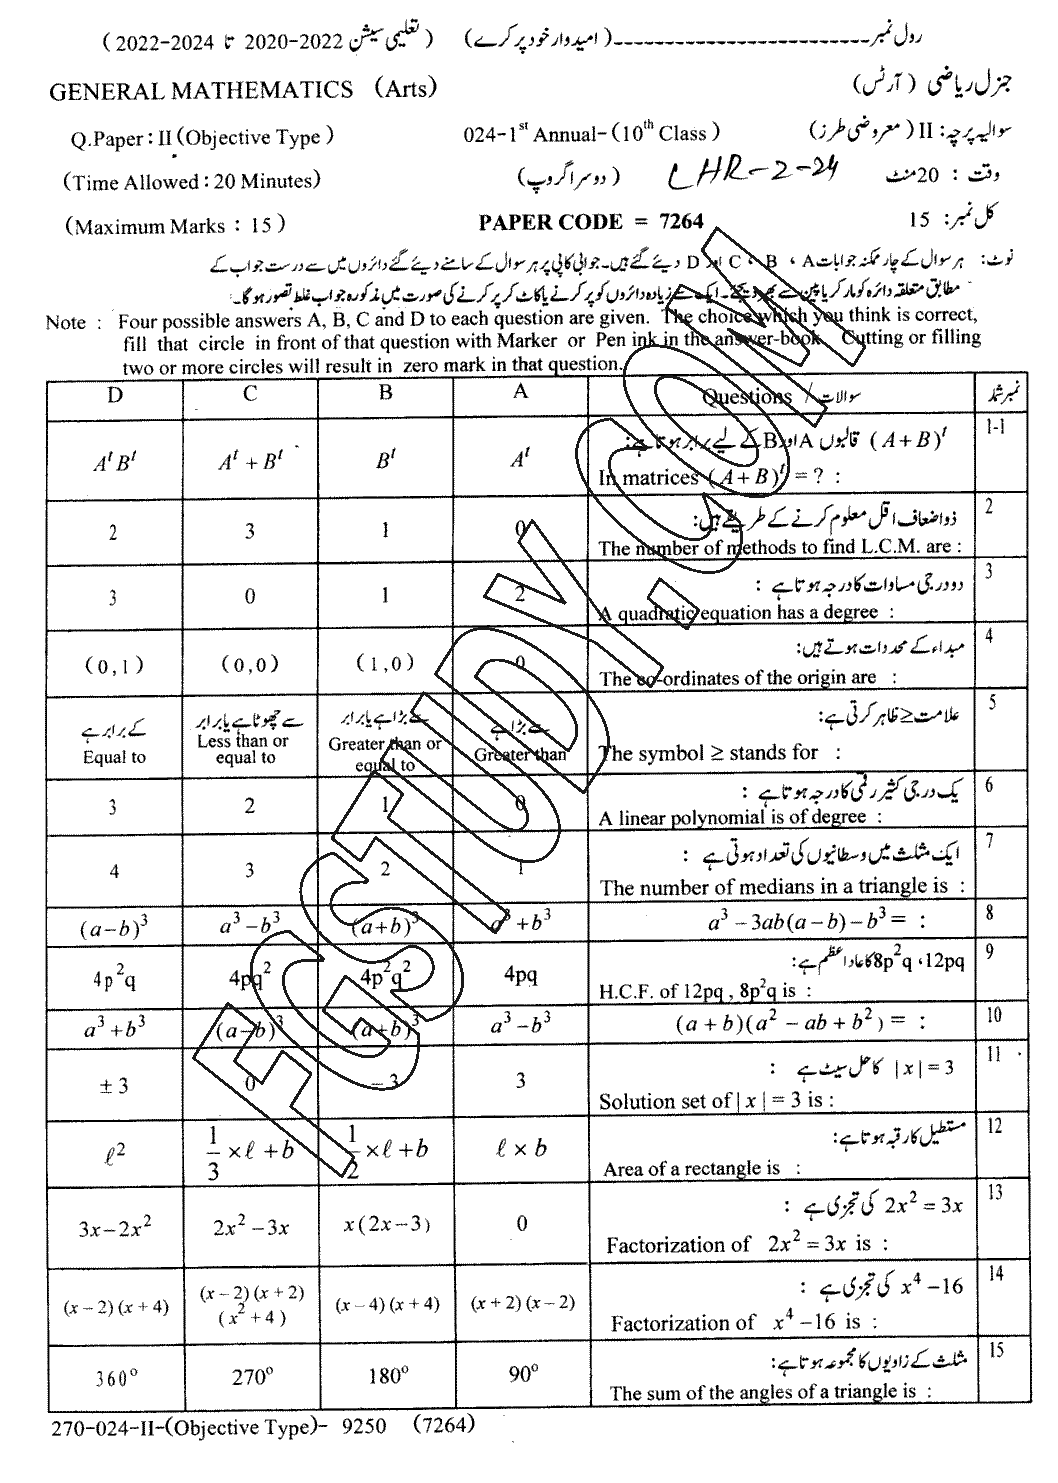 رول نمبر ــــــــــــــــــــــــ (امیدوار خود پُر کرے) (تعلیمی سیشن 2020-2022 تا 2022-2024)
GENERAL MATHEMATICS (Arts) جنرل ریاضی (آرٹس)
Q.Paper : II (Objective Type) 024-1st Annual-(10th Class) سوالیہ پرچہ: II (معروضی طرز)
(Time Allowed : 20 Minutes) (دوسرا گروپ) LHR-2-24 وقت : 20 منٹ
(Maximum Marks : 15) PAPER CODE = 7264 کل نمبر: 15
نوٹ: ہر سوال کے چار ممکنہ جوابات A ، B ، C اور D دیئے گئے ہیں۔ جوابی کاپی پر ہر سوال کے سامنے دیئے گئے دائروں میں سے درست جواب کے
مطابق متعلقہ دائرہ کو مارکر یا پین سے بھر دیجئے۔ ایک سے زیادہ دائروں کو پُر کرنے یا کاٹ کر پُر کرنے کی صورت میں مذکورہ جواب غلط تصور ہو گا۔
Note : Four possible answers A, B, C and D to each question are given. The choice which you think is correct,
fill that circle in front of that question with Marker or Pen ink in the answer-book. Cutting or filling
two or more circles will result in zero mark in that question.
D C B A Questions / سوالات نمبر شمار
1-1 (A+B)^t قالبوں A اور B کے لیے برابر ہوتا ہے:
A^t B^t A^t + B^t B^t A^t In matrices (A+B)^t = ? :
2 ذواضعاف اقل معلوم کرنے کے طریقے ہیں:
2 3 1 0 The number of methods to find L.C.M. are :
3 دو درجی مساوات کا درجہ ہوتا ہے :
3 0 1 2 A quadratic equation has a degree :
4 مبداء کے محددات ہوتے ہیں:
(0,1) (0,0) (1,0) 0 The co-ordinates of the origin are :
5 علامت ≥ ظاہر کرتی ہے:
کے برابر ہے سے چھوٹا ہے یا برابر سے بڑا ہے یا برابر سے بڑا ہے
Equal to Less than or equal to Greater than or equal to Greater than The symbol ≥ stands for :
6 یک درجی کثیر رقمی کا درجہ ہوتا ہے :
3 2 1 0 A linear polynomial is of degree :
7 ایک مثلث میں وسطانیوں کی تعداد ہوتی ہے :
4 3 2 1 The number of medians in a triangle is :
(a−b)³ a³−b³ (a+b)³ a³+b³ a³−3ab(a−b)−b³ = : 8
9 8p²q ،12pq کا عاد اعظم ہے:
4p²q 4pq² 4p²q² 4pq H.C.F. of 12pq , 8p²q is :
a³+b³ (a−b)³ (a+b)³ a³−b³ (a+b)(a²−ab+b²) = : 10
11 |x|=3 کا حل سیٹ ہے :
±3 0 −3 3 Solution set of |x|=3 is :
12 مستطیل کا رقبہ ہوتا ہے:
ℓ² 1/3 ×ℓ+b 1/2 ×ℓ+b ℓ×b Area of a rectangle is :
13 2x²=3x کی تجزی ہے :
3x−2x² 2x²−3x x(2x−3) 0 Factorization of 2x²=3x is :
14 x⁴−16 کی تجزی ہے :
(x−2)(x+4) (x−2)(x+2)(x²+4) (x−4)(x+4) (x+2)(x−2) Factorization of x⁴−16 is :
15 مثلث کے زاویوں کا مجموعہ ہوتا ہے:
360° 270° 180° 90° The sum of the angles of a triangle is :
270-024-II-(Objective Type)- 9250 (7264)
FGSTUDY.COM